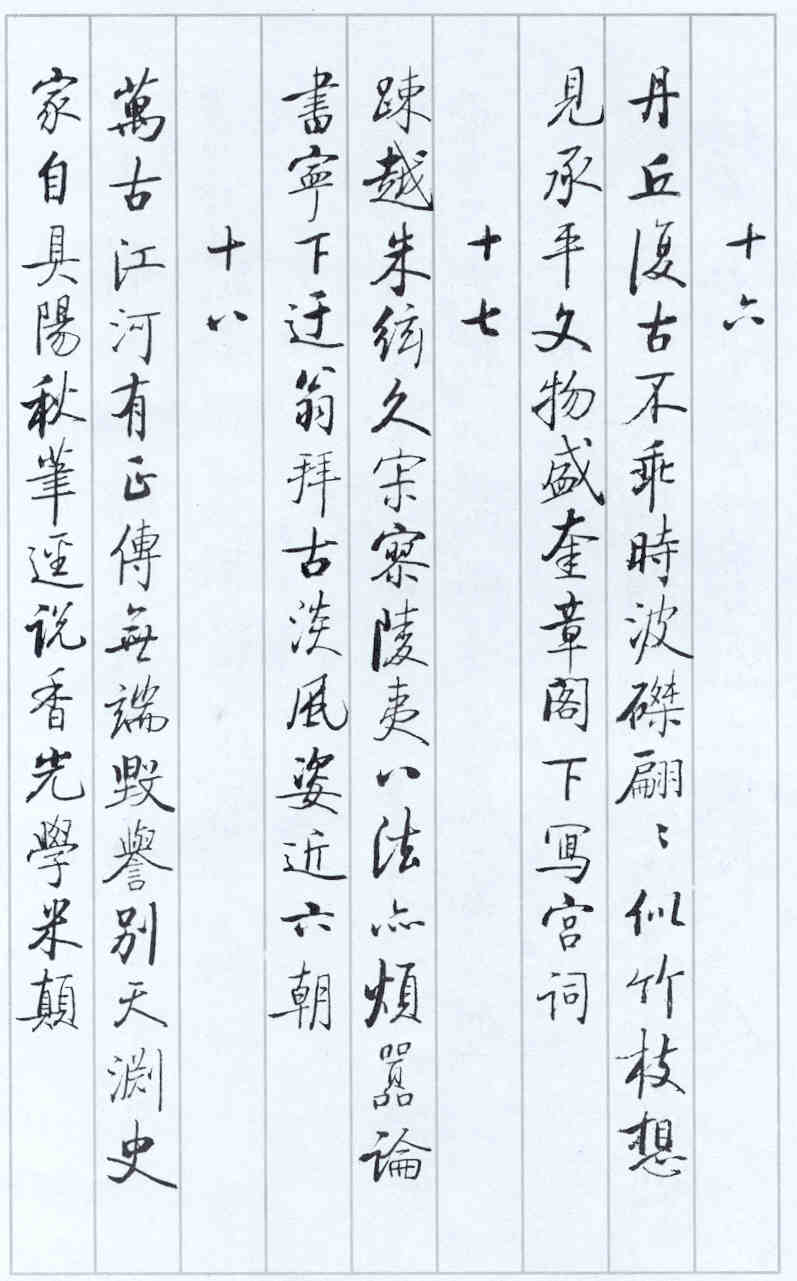 十六
丹丘復古不乖時波磔翩〻似竹枝想
見承平文物盛奎章閣下寫宮詞
十七
疎越朱絃久寂寥陵夷八法亦煩囂論
書寧下迂翁拜古淡風姿近六朝
十八
萬古江河有正傳無端毀譽別天淵史
家自具陽秋筆逕説香光學米顛